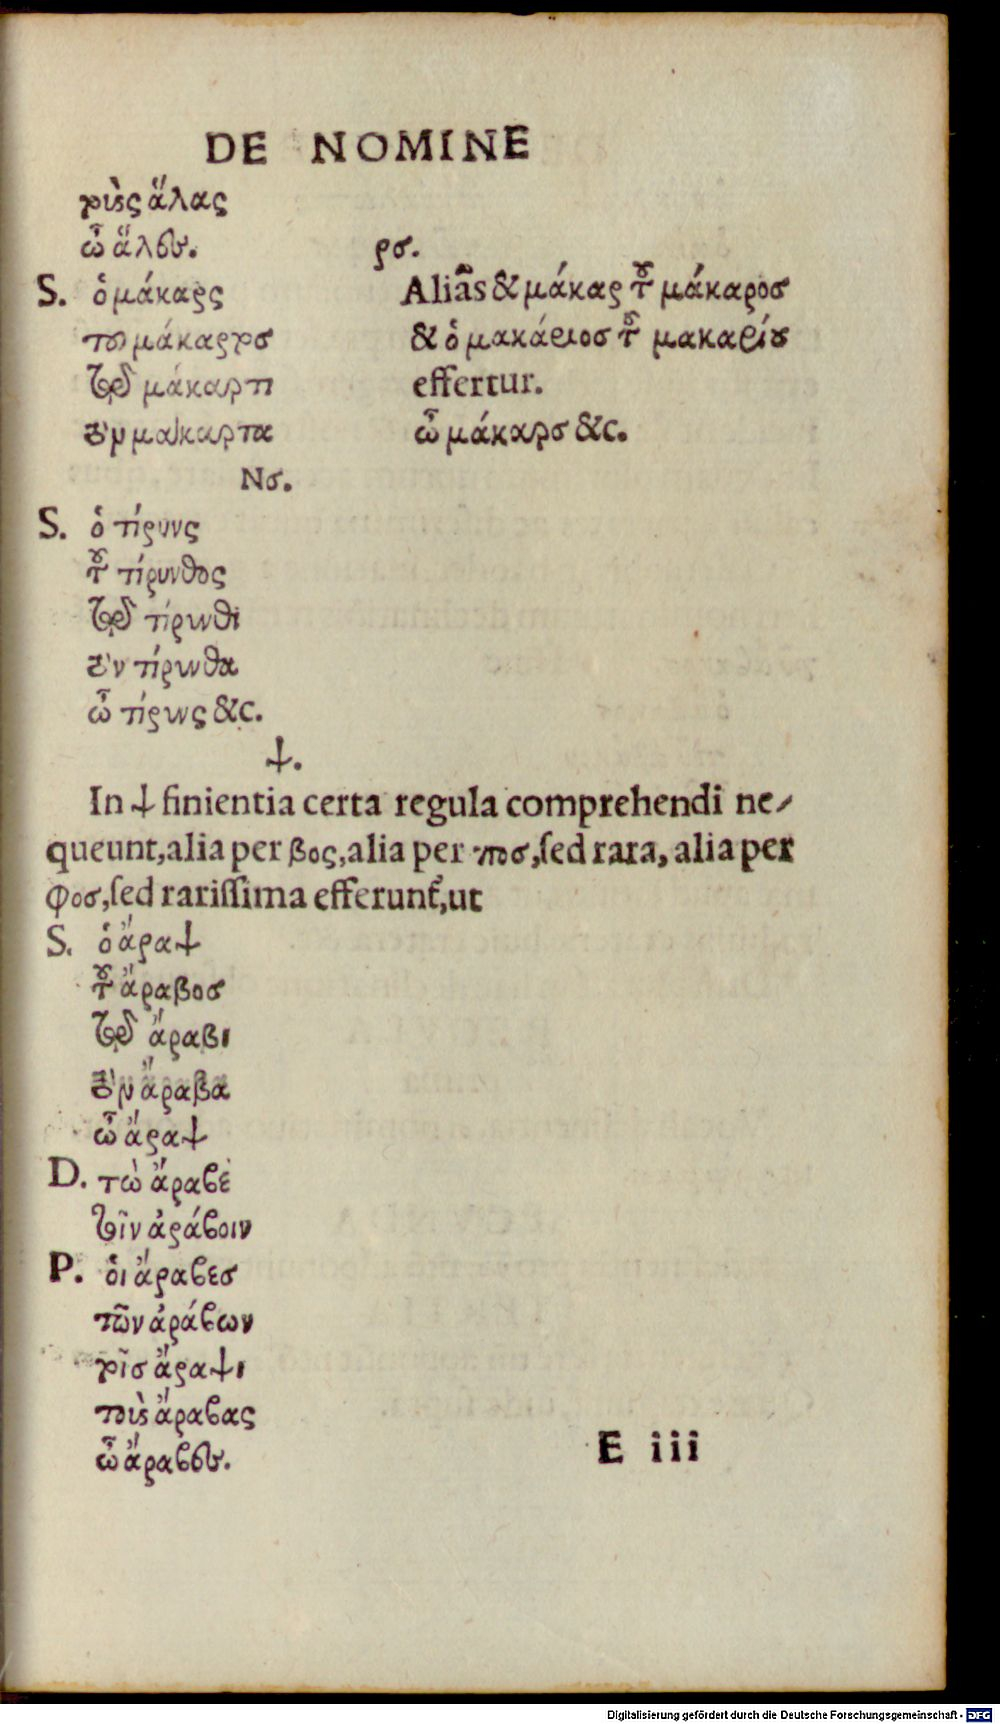 DE NOMINE
τοὺς ἅλας
ὦ ἅλες.
ρσ.
S. ὁ μάκαρς
του μάκαρτοσ
τῷ μάκαρτι
τὸν μακαρτα
Aliâs & μάκαρ τοῦ μάκαροσ
& ὁ μακάριοσ τοῦ μακαρίου
effertur.
ὦ μάκαρσ &c.
Νσ.
S. ὁ τίρυνς
τοῦ τίρυνθος
τῷ τίρυνθι
τὸν τίρυνθα
ὦ τίρυνς &c.
ψ.
In ψ finientia certa regula comprehendi ne-
queunt, alia per βος, alia per ποσ, sed rara, alia per
φοσ, sed rarissima efferunt̃, ut
S. ὁ ἄραψ
τοῦ ἄραβοσ
τῷ ἄραβι
τὸν ἄραβα
ὦ ἄραψ
D. τὼ ἄραβε
τοῖν ἀράβοιν
P. ὁι ἄραβεσ
τῶν ἀράβων
τοῖσ ἄραψι
τοὺς ἄραβας
ὦ ἄραβες.
E iii
Digitalisierung gefördert durch die Deutsche Forschungsgemeinschaft - DFG